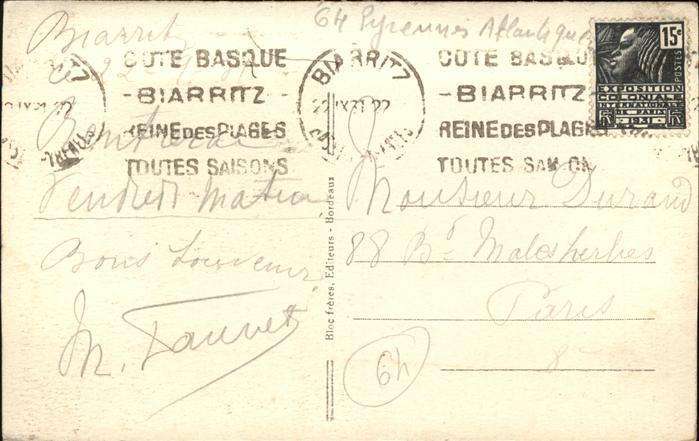 64 Pyrennes Atlantiques
Biarritz
ce 22
COTE BASQUE
-BIARRITZ-
REINE DES PLAGES
TOUTES SAISONS
BIARRITZ
22 IX 31
COTE BASQUE
-BIARRITZ
REINE DES PLAGES
TOUTES SAISON
15c
POSTES
EXPOSITION
COLONIALE
INTERNATIONALE
PARIS
1931
RF
RF
Vendredi matin
Bons souvenirs
Bloc frères, Editeurs - Bordeaux
Monsieur Durand
88 Bd Malesherbes
Paris
8
64